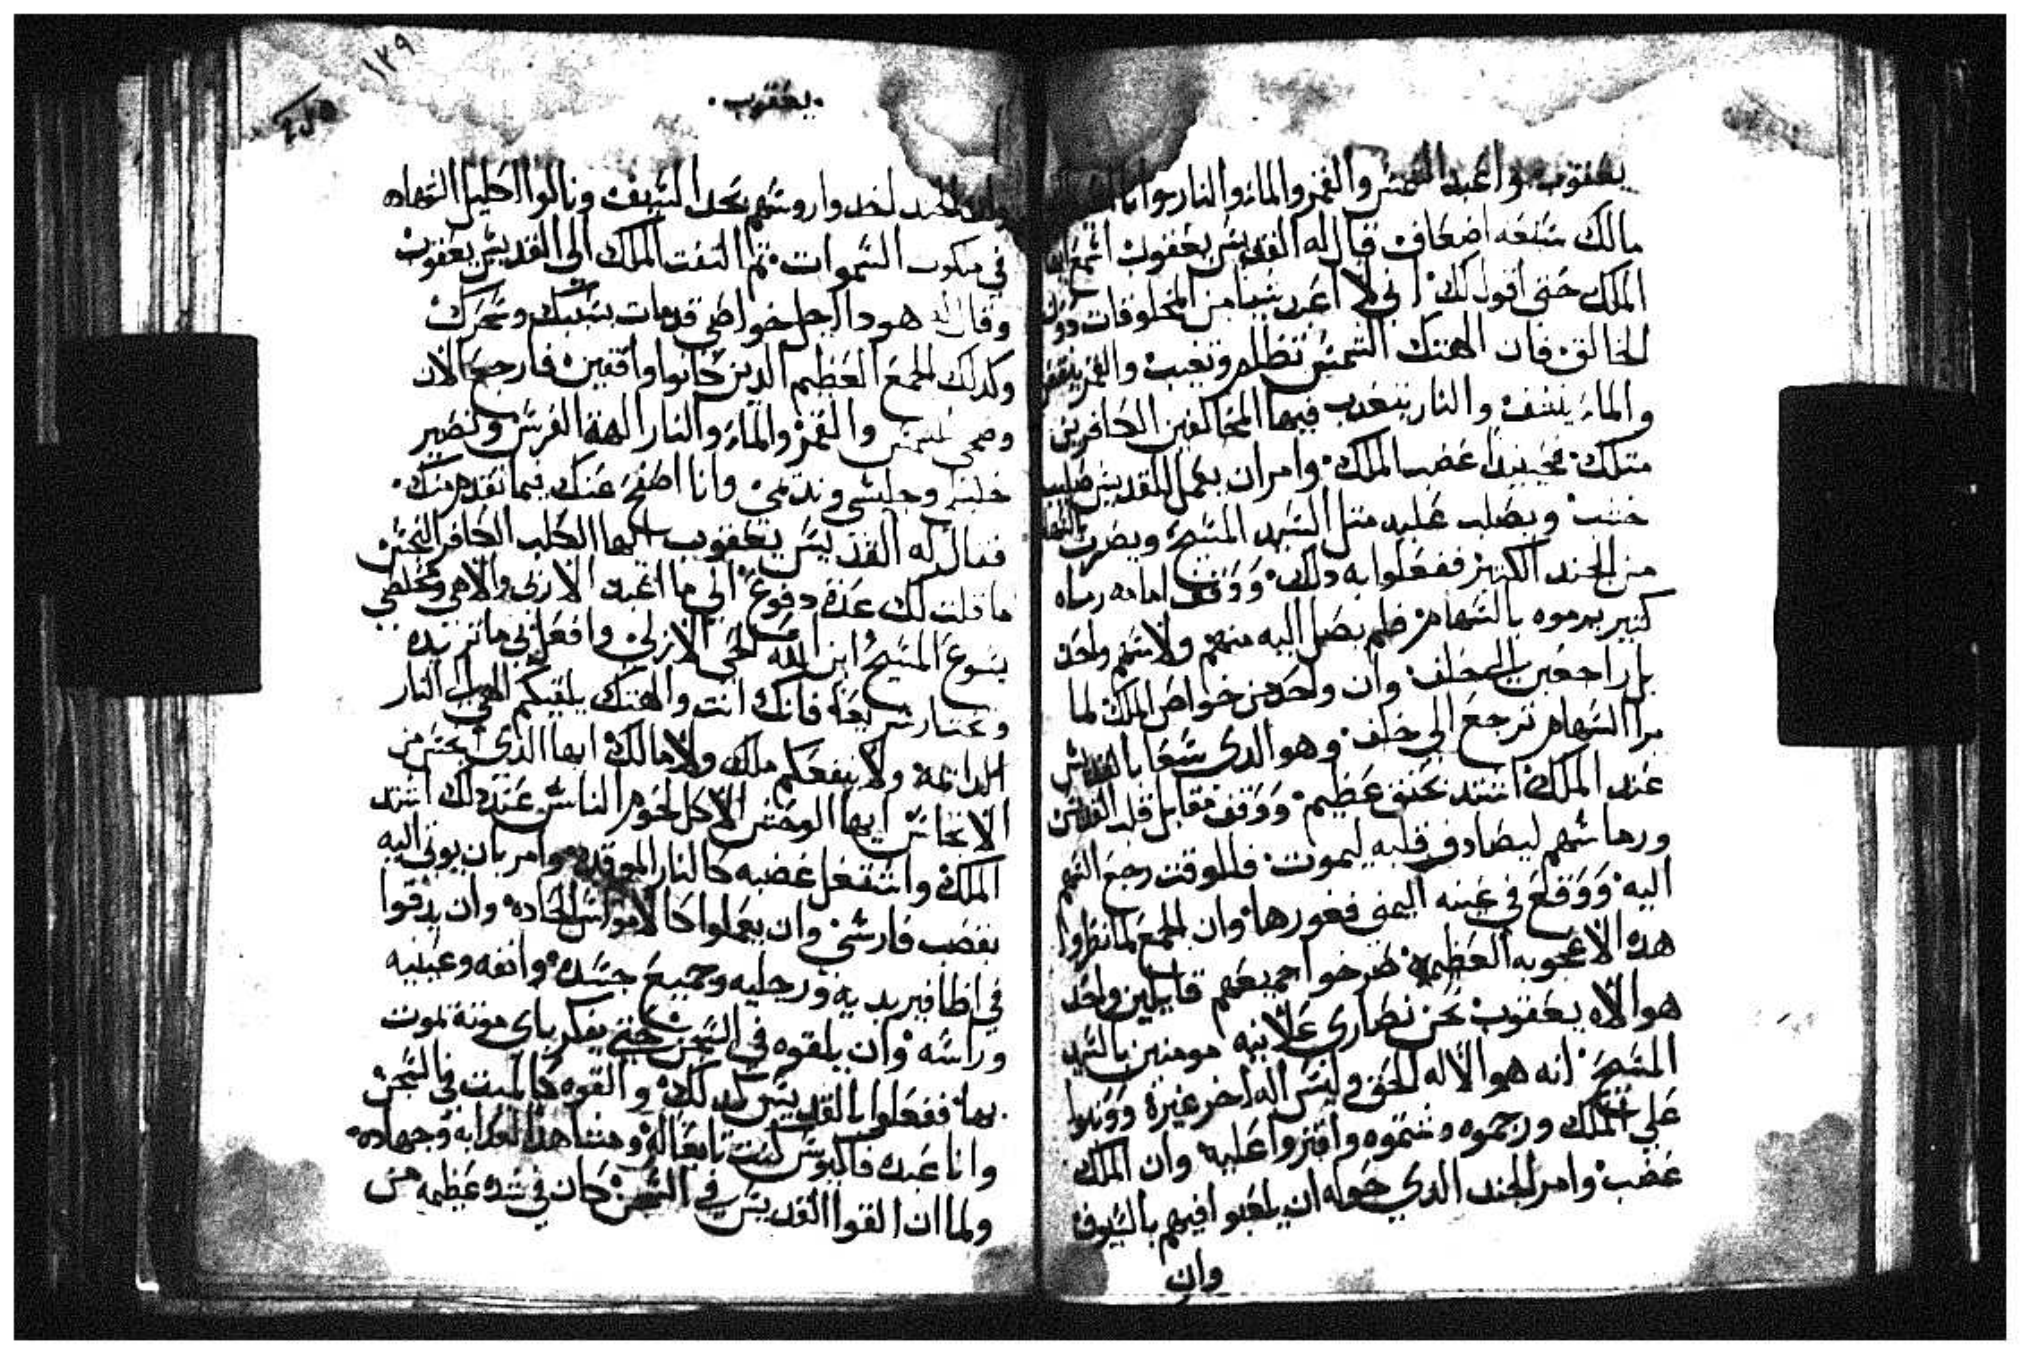 يعقوب واعبد الشمس والقمر والماء والنار وانا
مالك سبعه اضعاف قال له القديس يعقوب اسمع ايها
الملك حتي اقول لك اني لا اعبد شيا من المخلوقات دون
الخالق فان الهتك الشمس تظلم وتغيب والقمر ينقص
والماء ينشف والنار يتعدب فيها المخالفين الكافرين
متلك فحينيدا غضب الملك وامر ان يعمل للقديس صليب
خشب ويصلب عليه متل السيد المسيح ويضرب
من الجند الكتير ففعلوا به دلك ووقف امامه رماه
كتير يرموه بالسهام فلم يصل اليه منهم ولا سهم واحد
بل راجعين الي خلف وان واحد من خواص الملك لما
برا السهام ترجع الي خلف وهو الدي سعا بالقديس
عند الملك اشتد بحنق عظيم ووقف مقابل قلب القديس
ورما سهم ليصادف قلبه ليموت فللوقت رجع السهم
اليه ووقع في عينه اليمني فعورها وان الجمع لما نظروا
هده الاعجوبه العظيمه صرخوا جميعهم قايلين واحد
هو الاه يعقوب نحن نصاري علانيه مومنين بالسيد
المسيح انه هو الاله الحق وليس اله اخر غيره ووتبوا
علي الملك ورجموه وشتموه وافتروا عليه وان الملك
غضب وامر الجند الدي حوله ان يلعبوا فيهم بالسيوف
وان
١٢٩
يعقوب
الجند اخدوا روسهم بحد السيف ونالوا اكليل الشهاده
في ملكوت السموات تم التفت الملك الي القديس يعقوب
وقال له هودا رجل خواصي قد مات بسببك وسحرك
وكدلك الجمع العظيم الدين كانوا واقفين فارجع الان
وضحي للشمس والقمر والماء والنار الهة الفرس وتصير
خليلي وجليسي ونديمي وانا اصفح عنك فيما تقدم منك
فقال له القديس يعقوب ايها الكلب الكافر النجس
ما قلت لك عدة دفوع اني ما اعبد الا ربي والاهي ومخلصي
يسوع المسيح ابن الله الحي الازلي وافعل بي ما تريده
وتختار سريعا فانك انت والهتك يلقيكم الهي النار
الدايمة ولا ينفعكم ملك ولا مالك ايها الدي انجس من
الانجاس ايها الوحش الاكل لحوم الناس عند دلك اشتد
الملك واشتعل غضبه كالنار الموقدة وامر بان يوتي اليه
بقصب فارسي وان يعملوا كالامواس الحاده وان يدقوا
في اظافير يديه ورجليه وجميع جسده وانفه وعينيه
وراسه وان يلقوه في السجن حتي يفكر باي موتة يموت
بها ففعلوا بالقديس كدلك والقوه كالميت في السجن
وانا عبدك كنت تابعا له ومشاهدا لعدابه وجهاده
ولما ان القوا القديس في السجن كان في شدة عظيمه من